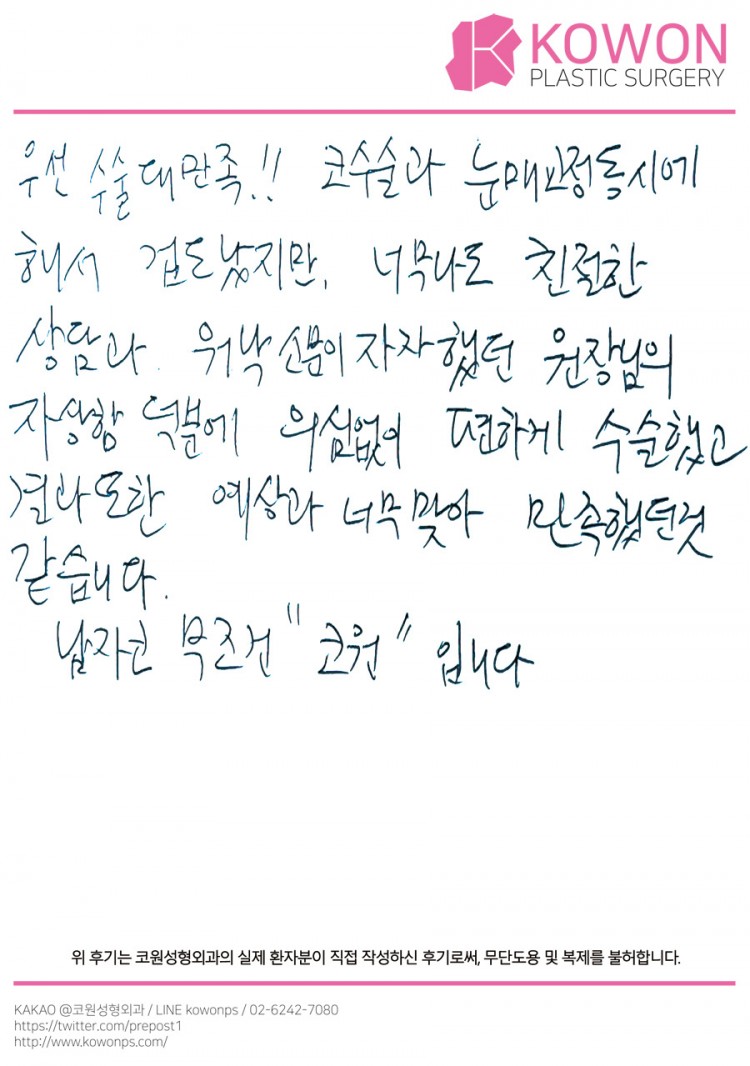 KOWON
PLASTIC SURGERY
우선 수술 대만족!! 코수술과 눈매교정동시에
해서 겁도났지만, 너무나도 친절한
상담과. 워낙 소문이 자자했던 원장님의
자상함 덕분에 의심없이 편하게 수술했고
결과또한 예상과 너무맞아 만족했던것
같습니다.
남자코 무조건 "코원" 입니다
위 후기는 코원성형외과의 실제 환자분이 직접 작성하신 후기로써, 무단도용 및 복제를 불허합니다.
KAKAO @코원성형외과 / LINE kowonps / 02-6242-7080
https://twitter.com/prepost1
http://www.kowonps.com/